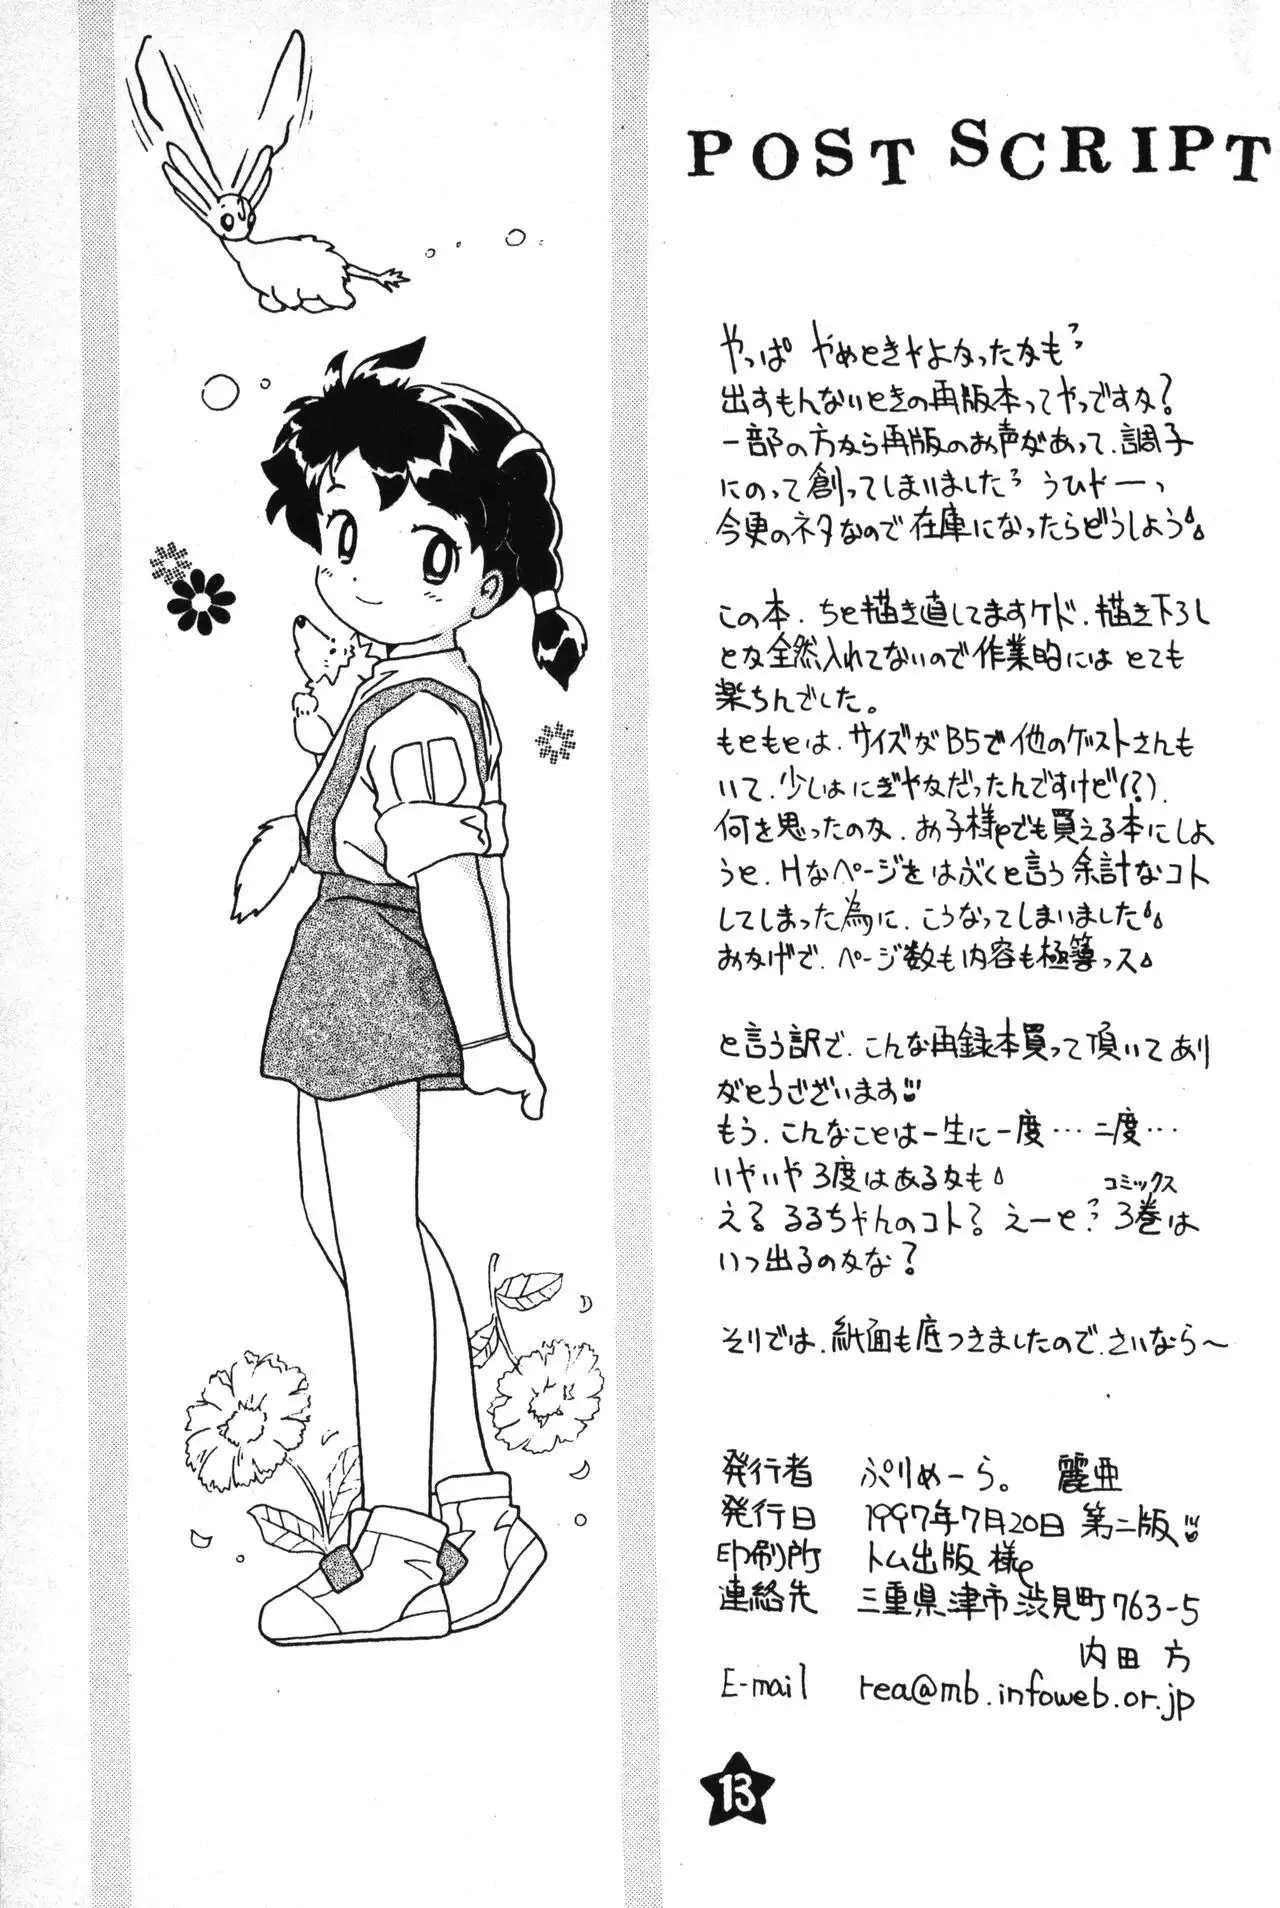 POST SCRIPT
やっぱ やめときゃよかったかも?
出すもんないときの再版本ってやつですか?
一部の方から再版のお声があって、調子
にのって創ってしまいました? うひゃーっ
今更のネタなので在庫になったらどうしよう
この本、ちと描き直してますケド、描き下ろし
とか全然入れてないので作業的にはとても
楽ちんでした。
もともとは、サイズがB5で他のゲストさんも
いて、少しはにぎやかだったんですけど(?)、
何を思ったのか、お子様でも買える本にしよ
うと、Hなページをはぶくと言う余計なコト
してしまった為に、こうなってしまいました
おかげで、ページ数も内容も極薄っス
と言う訳で、こんな再録本買って頂いてあり
がとうございます
もう、こんなことは一生に一度…二度…
いやいや3度はあるかも
コミックス
える るるちゃんのコト? えーと? 3巻は
いつ出るのかな?
そりでは、紙面も底つきましたので、さいなら〜
発行者 ぷりめーら。 麗亜
発行日 1997年7月20日 第二版
印刷所 トム出版 様
連絡先 三重県津市渋見町763-5
内田 方
E-mail rea@mb.infoweb.or.jp
13